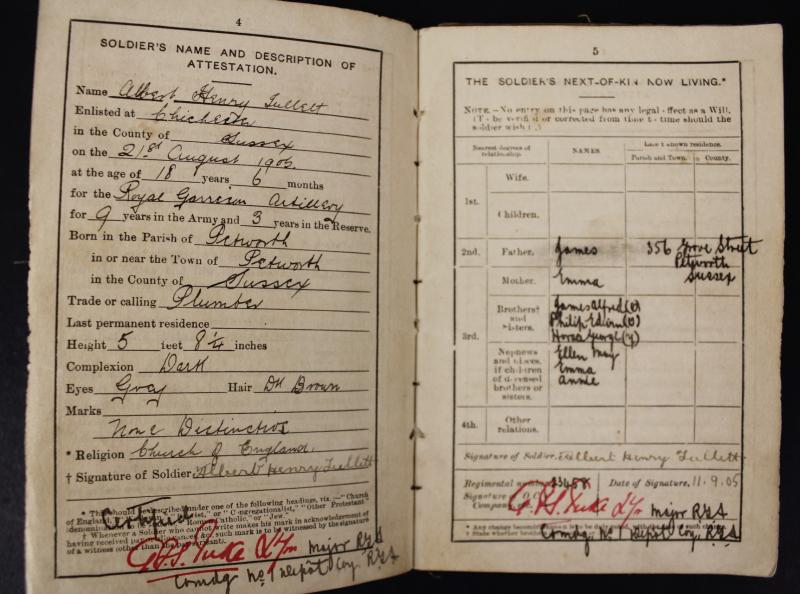 4
SOLDIER'S NAME AND DESCRIPTION OF
ATTESTATION.
Name Albert Henry Tullett
Enlisted at Chichester
in the County of Sussex
on the 21st August 1905.
at the age of 18 years 6 months
for the Royal Garrison Artillery
for 9 years in the Army and 3 years in the Reserve.
Born in the Parish of Petworth
in or near the Town of Petworth
in the County of Sussex
Trade or calling Plumber
Last permanent residence
Height 5 feet 8¼ inches
Complexion Dark
Eyes Grey Hair Dk Brown
Marks
None Distinctive
* Religion Church of England.
† Signature of Soldier Albert Henry Tullett
* This should be described under one of the following headings, viz.:— "Church
of England," "Presbyterian," "Wesleyan," "Congregationalist," "Other Protestant"
Roman Catholic," or "Jew."
† Whenever a Soldier who cannot write makes his mark in acknowledgment of
having received such mark is to be witnessed by the signature
of a witness other than the
Certified
Major RGA
Comdg No 1 Depot Coy. RGA
5
THE SOLDIER'S NEXT-OF-KIN NOW LIVING.*
NOTE.—No entry on this page has any legal effect as a Will.
(To be verified or corrected from time to time should the
soldier wish it.)
Nearest degrees of relationship.
NAMES
Last known residence.
Parish and Town. County.
1st. Wife.
Children.
2nd. Father, James 356 Grove Street
Petworth
Sussex
Mother. Emma
3rd. Brothers† and Sisters. James Alfred (e)
Philip Edwin (e)
Horace George (y)
Nephews and nieces, if children of deceased brothers or sisters.
Ellen May
Emma
Annie
4th. Other relations.
Signature of Soldier. Albert Henry Tullett
Regimental number Date of Signature, 11.9.05
Signature of O.C.
Company
Major RGA
Comdg. No 1 Depot Coy. RGA